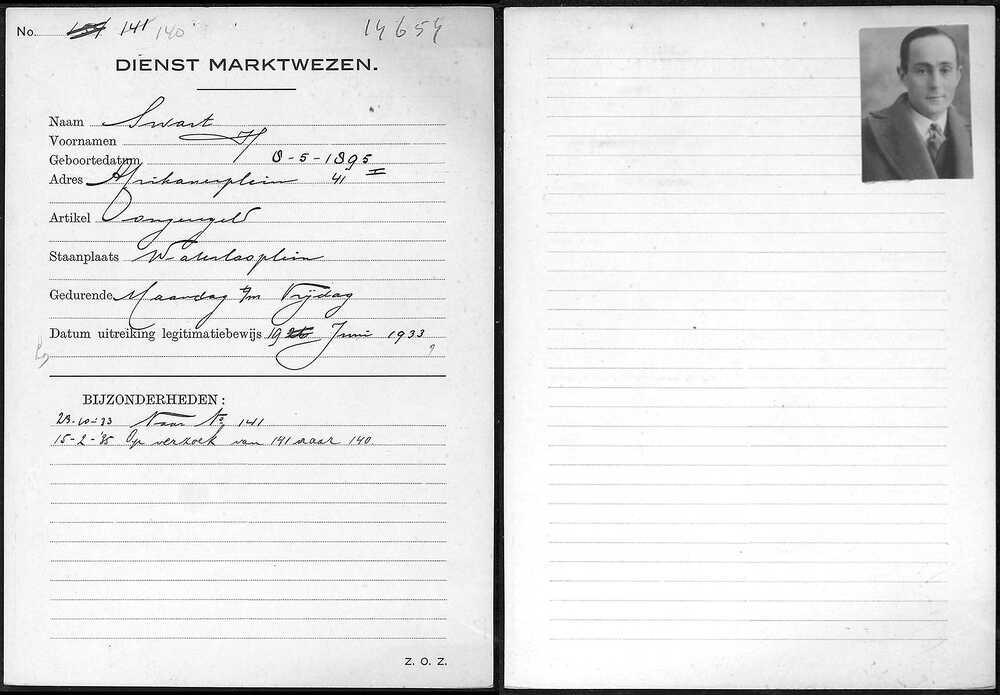 No. 141 140 14654
DIENST MARKTWEZEN.
Naam Swart
Voornamen H
Geboortedatum 8-5-1895
Adres Afrikanerplein 41 I
Artikel Ongeregeld
Staanplaats Waterlooplein
Gedurende Maandag t/m Vrijdag
Datum uitreiking legitimatiebewijs 19 Juni 1933
BIJZONDERHEDEN:
23-10-33 Naar No 141
15-2-'35 Op verzoek van 141 naar 140
Z. O. Z.